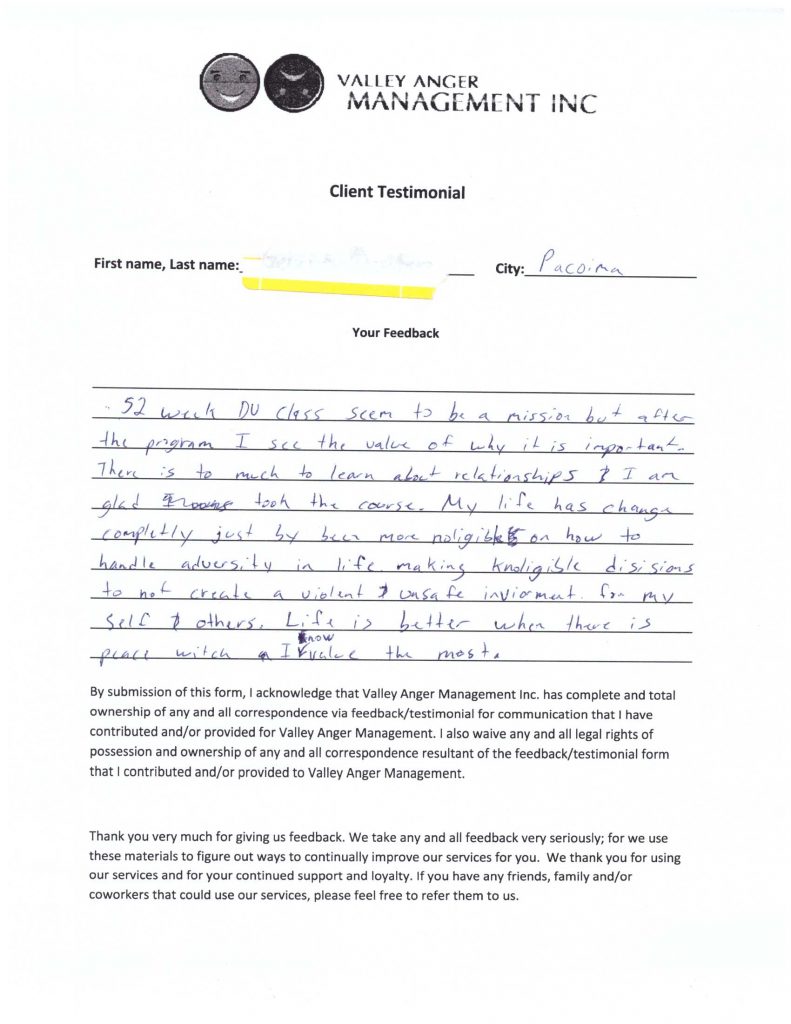 VALLEY ANGER
MANAGEMENT INC
Client Testimonial
First name, Last name: City: Pacoima
Your Feedback
52 week DV class seem to be a mission but after
the program I see the value of why it is important.
There is to much to learn about relationships & I am
glad took the course. My life has change
completly just by been more noligible on how to
handle adversity in life making knoligible disisions
to not create a violent & unsafe inviorment. for my
self & others. Life is better when there is
know
peace witch I value the most.
By submission of this form, I acknowledge that Valley Anger Management Inc. has complete and total
ownership of any and all correspondence via feedback/testimonial for communication that I have
contributed and/or provided for Valley Anger Management. I also waive any and all legal rights of
possession and ownership of any and all correspondence resultant of the feedback/testimonial form
that I contributed and/or provided to Valley Anger Management.
Thank you very much for giving us feedback. We take any and all feedback very seriously; for we use
these materials to figure out ways to continually improve our services for you. We thank you for using
our services and for your continued support and loyalty. If you have any friends, family and/or
coworkers that could use our services, please feel free to refer them to us.